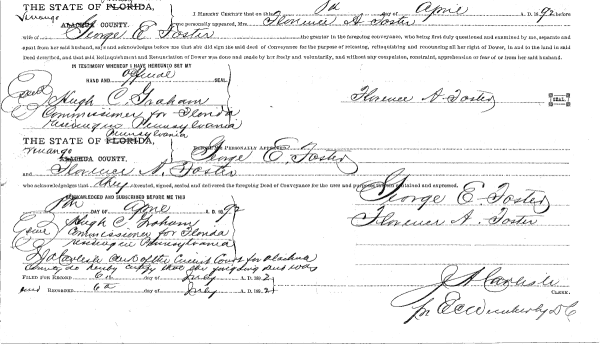 Pennsylvania
THE STATE OF FLORIDA,
Venango
ALACHUA COUNTY.
I HEREBY CERTIFY that on this 1st day of April A. D. 1892 before
me personally appeared, Mrs. Florence A. Foster
wife of George E. Foster the grantor in the foregoing conveyance, who being first duly questioned and examined by me, separate and
apart from her said husband, says and acknowledges before me that she did sign the said deed of Conveyance for the purpose of releasing, relinquishing and renouncing all her right of Dower, in and to the land in said
Deed described, and that said Relinquishment and Renunciation of Dower was done and made by her freely and voluntarily, and without any compulsion, constraint, apprehension or fear of or from her said husband.
IN TESTIMONY WHEREOF I HAVE HEREUNTO SET MY
HAND AND Official SEAL.
Seal
Hugh C. Graham
Commissioner for Florida
residing in Pennsylvania
Florence A. Foster
SEAL
Pennsylvania
THE STATE OF FLORIDA,
Venango
ALACHUA COUNTY.
PERSONALLY APPEARED George E. Foster
and Florence A. Foster
who acknowledges that they executed, signed, sealed and delivered the foregoing Deed of Conveyance for the uses and purposes therein contained and expressed.
ACKNOWLEDGED AND SUBSCRIBED BEFORE ME THIS
DAY OF April A. D. 1892
George E. Foster
Florence A. Foster
Hugh C. Graham
Commissioner for Florida
residing in Pennsylvania
J A Carlisle Clerk of the Circuit Court for Alachua
County do hereby certify that the foregoing deed was
FILED FOR RECORD 6th day of July A. D. 1892
and RECORDED 6th day of July A. D. 1892
J A Carlisle
CLERK.
per E C D C